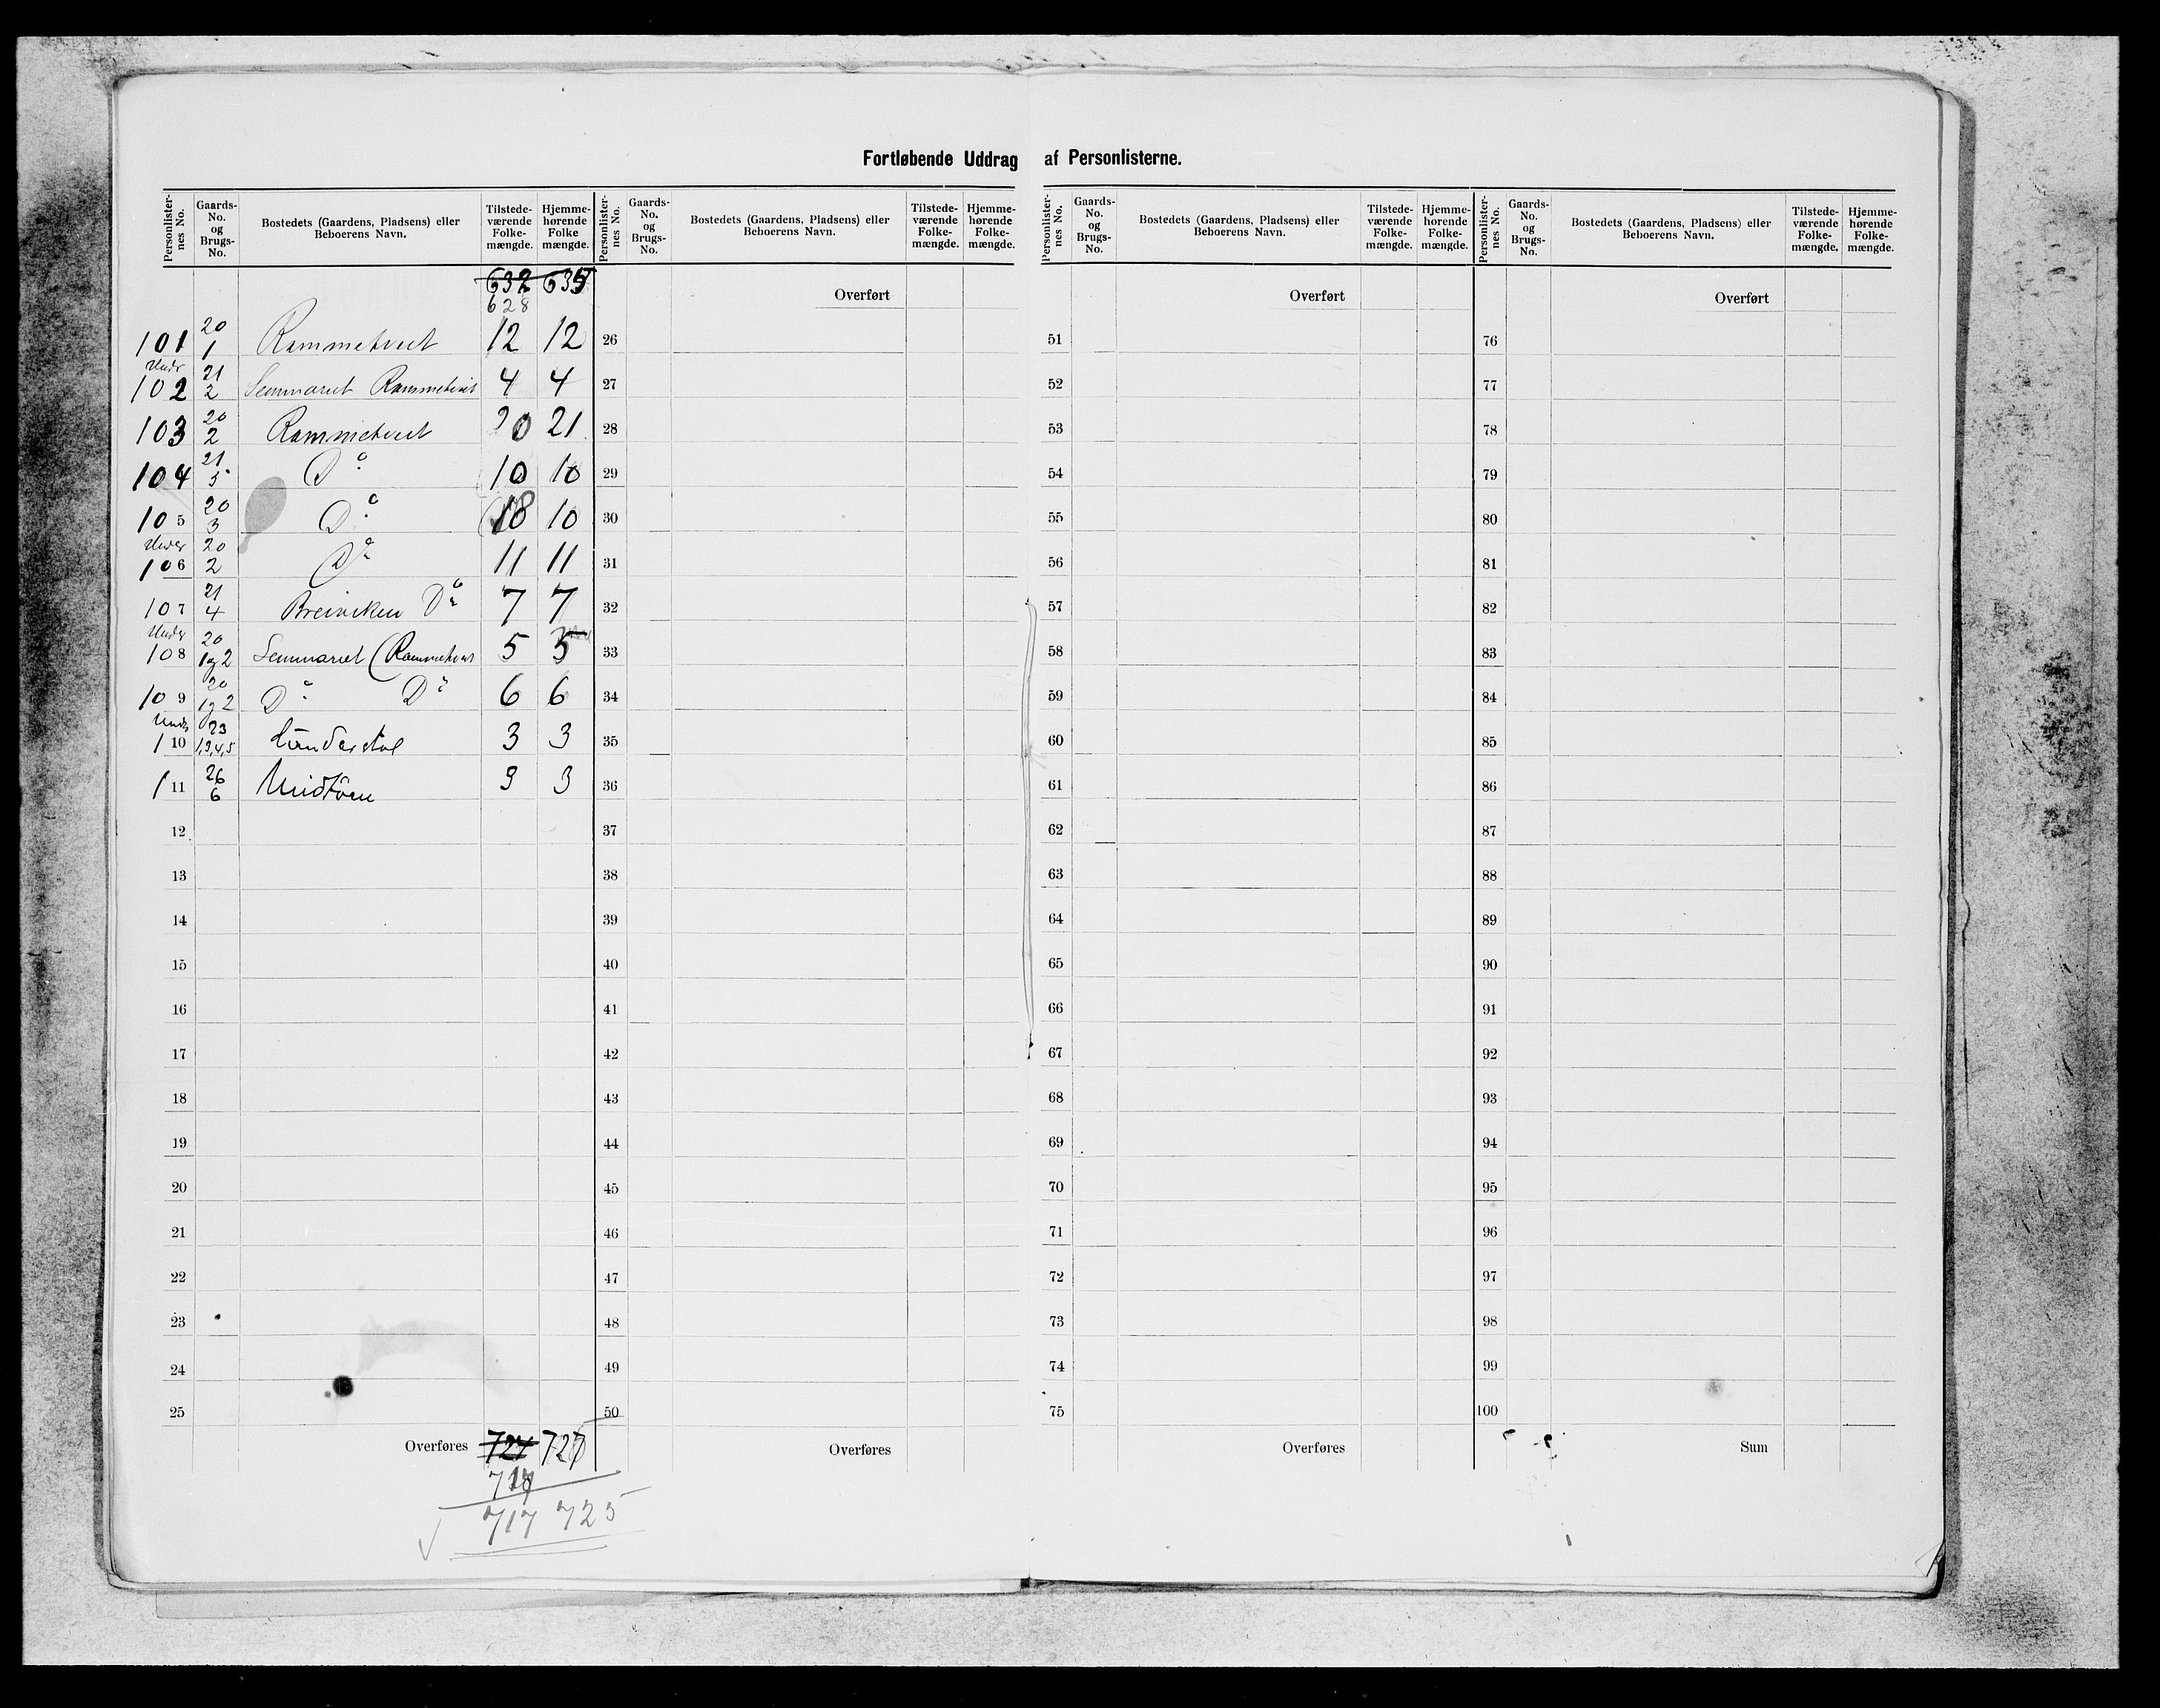 Fortløbende Uddrag af Personlisterne.
Personlisternes No. Gaards-No. og Brugs-No. Bostedets (Gaardens, Pladsens) eller Beboerens Navn. Tilstedeværende Folkemængde. Hjemmehørende Folkemængde.
Personlisternes No. Gaards-No. og Brugs-No. Bostedets (Gaardens, Pladsens) eller Beboerens Navn. Tilstedeværende Folkemængde. Hjemmehørende Folkemængde.
Personlisternes No. Gaards-No. og Brugs-No. Bostedets (Gaardens, Pladsens) eller Beboerens Navn. Tilstedeværende Folkemængde. Hjemmehørende Folkemængde.
Personlisternes No. Gaards-No. og Brugs-No. Bostedets (Gaardens, Pladsens) eller Beboerens Navn. Tilstedeværende Folkemængde. Hjemmehørende Folkemængde.
632 635 Overført Overført Overført
628
101 20 1 Rammetveit 12 12 26 51 76
Under 102 21 2 Rammetveit 4 4 27 52 77
103 20 2 Rammetveit 20 21 28 53 78
104 21 5 Do 10 10 29 54 79
105 20 3 Do 10 30 55 80
Under 106 20 2 Do 11 11 31 56 81
107 21 4 Breiviken Do 7 7 32 57 82
Under 108 20 1 og 2 (Rammetveit 5 5 33 58 83
109 20 1 og 2 Do Do 6 6 34 59 84
Under 110 23 1,3,4,5 3 3 35 60 85
111 26 6 Midtöen 3 3 36 61 86
12 37 62 87
13 38 63 88
14 39 64 89
15 40 65 90
16 41 66 91
17 42 67 92
18 43 68 93
19 44 69 94
20 45 70 95
21 46 71 96
22 47 72 97
23 48 73 98
24 49 74 99
25 50 75 100
Overføres 727 727 Overføres Overføres Sum
717 725